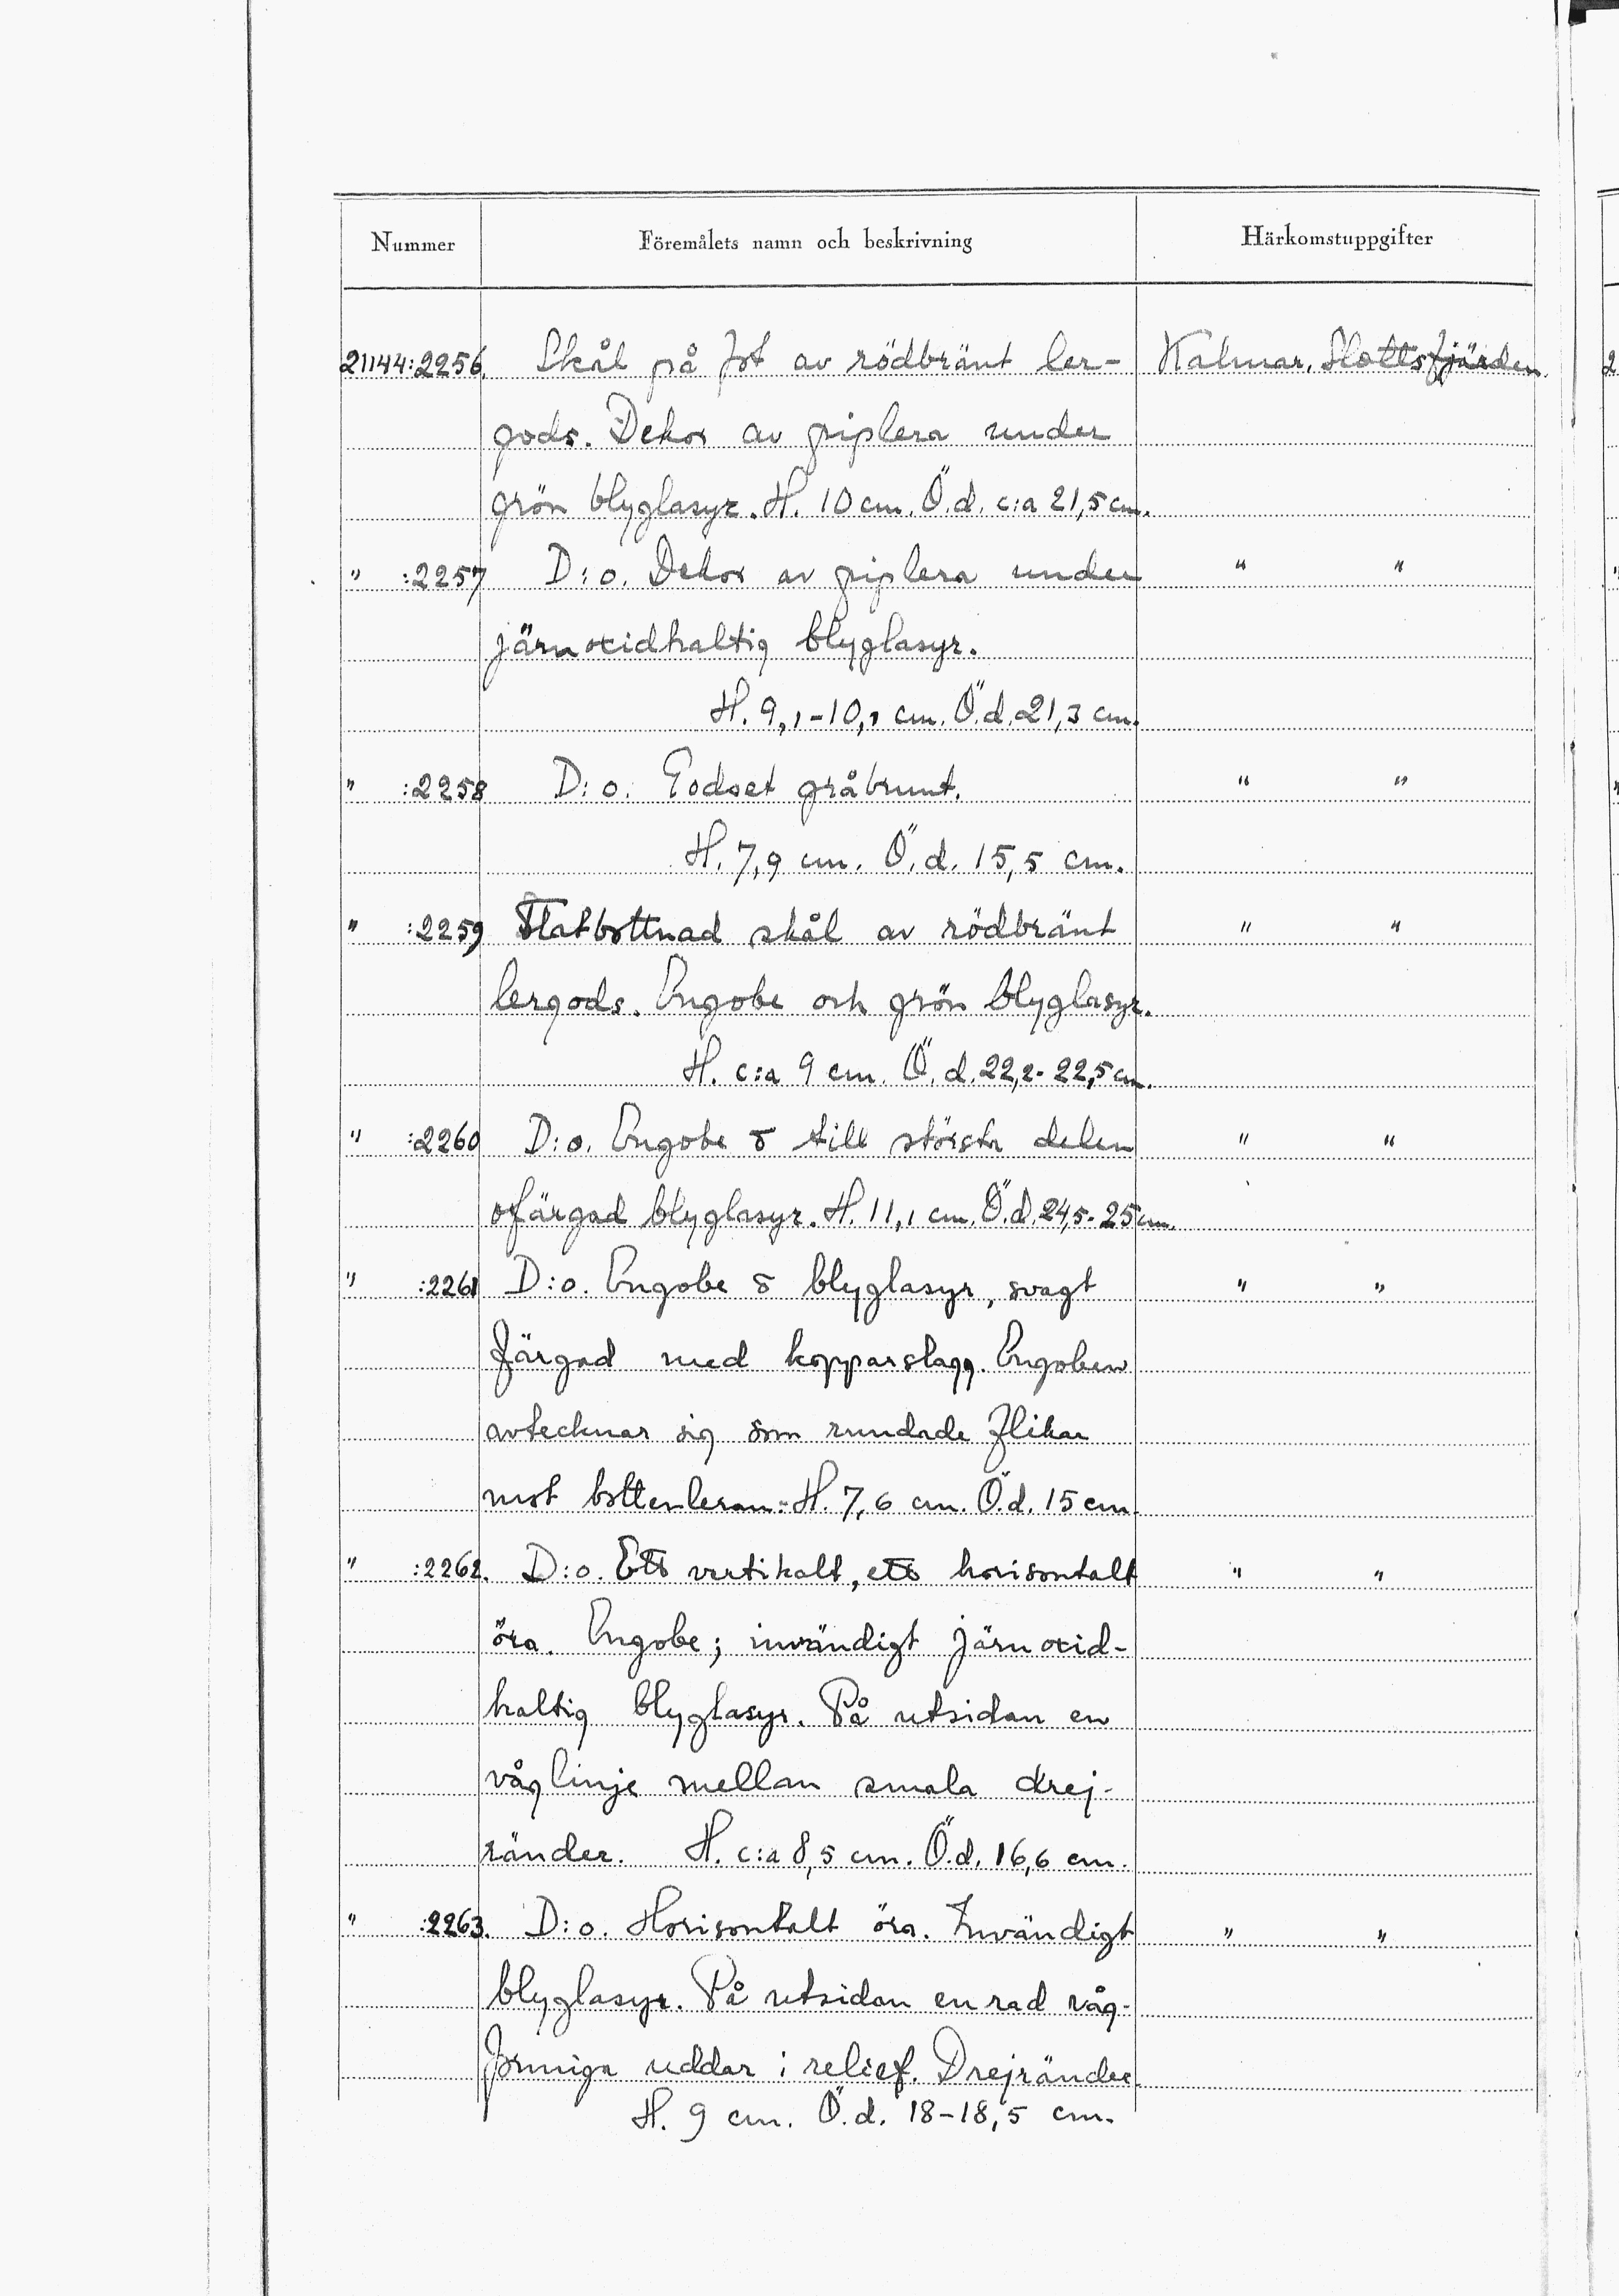 Nummer Föremålets namn och beskrivning Härkomstuppgifter
21144:2256. Skål på fot av rödbränt ler- Kalmar, Slottsfjärden.
gods. Dekor av piplera under
grön blyglasyr. H. 10 cm. Ö.d. c:a 21,5 cm.
" :2257 D:o. Dekor av piplera under " "
järnoxidhaltig blyglasyr.
H. 9,1-10,1 cm. Ö.d. 21,3 cm.
" :2258 D:o. Godset gråbrunt. " "
H. 7,9 cm. Ö.d. 15,5 cm.
" :2259 Flatbottnad skål av rödbränt " "
lergods. Engobe och grön blyglasyr.
H. c:a 9 cm. Ö.d. 22,2-22,5 cm.
" :2260 D:o. Engobe o till största delen " "
ofärgad blyglasyr. H. 11,1 cm. Ö.d. 24,5-25 cm.
" :2261 D:o. Engobe o blyglasyr, svagt " "
färgad med kopparslagg. Engoben
avtecknar sig som rundade flikar
mot bottenleran. H. 7,6 cm. Ö.d. 15 cm.
" :2262. D:o. Ett vertikalt, ett horisontalt " "
öra. Engobe; invändigt järnoxid-
haltig blyglasyr. På utsidan en
våglinje mellan smala drej-
ränder. H. c:a 8,5 cm. Ö.d. 16,6 cm.
" :2263. D:o. Horisontalt öra. Invändigt " "
blyglasyr. På utsidan en rad våg-
formiga uddar i relief. Drejränder
H. 9 cm. Ö.d. 18-18,5 cm.